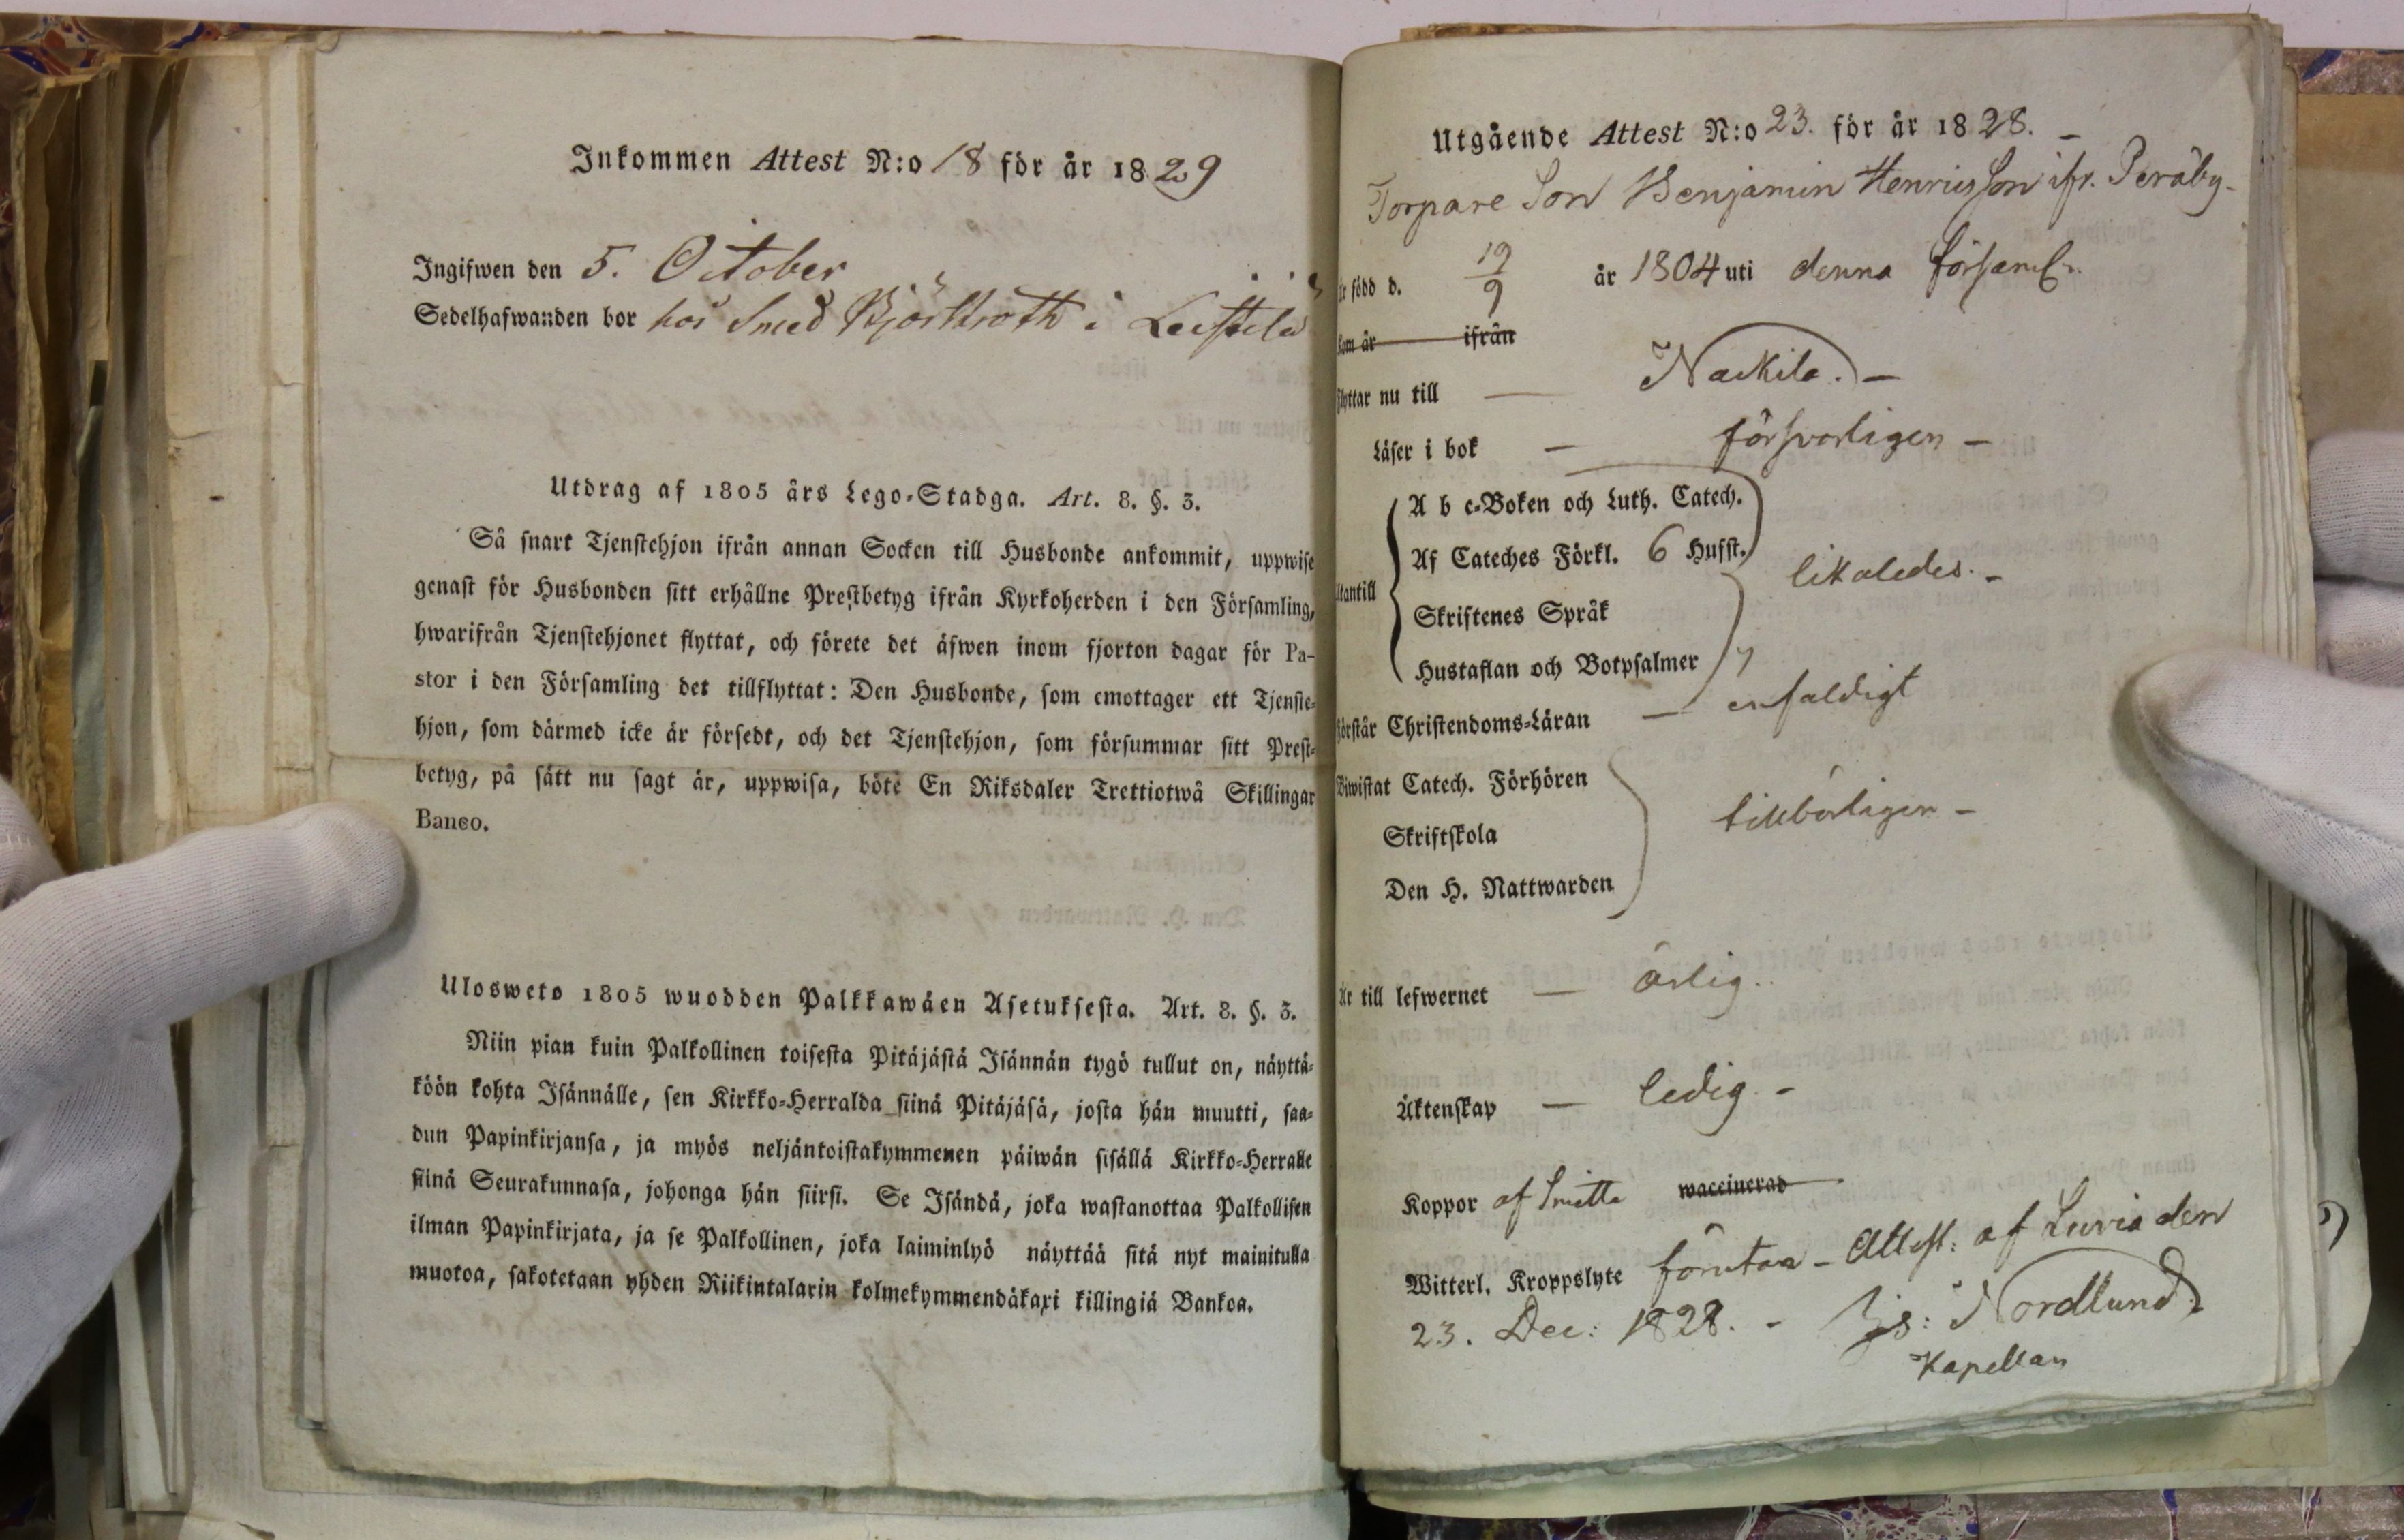 Inkommen Attest N:o 18 för år 1829
Ingifwen den 5. October
Sedelhafwanden bor hos Smed Björkroth i Leistilä
Utdrag af 1805 års Lego-Stadga. Art. 8. §. 3.
Så snart Tjenstehjon ifrån annan Socken till Husbonde ankommit, uppwise
genast för Husbonden sitt erhållne Prestbetyg ifrån Kyrkoherden i den Församling,
hwarifrån Tjenstehjonet flyttat, och förete det äfwen inom fjorton dagar för Pa-
stor i den Församling det tillflyttat: Den Husbonde, som emottager ett Tjenste-
hjon, som därmed icke är försedt, och det Tjenstehjon, som försummar sitt Prest-
betyg, på sätt nu sagt är, uppwisa, böte En Riksdaler Trettiotwå Skillingar
Banco.
Ulosweto 1805 wuodden Palkkawäen Asetuksesta. Art. 8. §. 3.
Niin pian kuin Palkollinen toisesta Pitäjästä Isännän tygö tullut on, näyttä-
köön kohta Isännälle, sen Kirkko-Herralda siinä Pitäjäsä, josta hän muutti, saa-
dun Papinkirjansa, ja myös neljäntoistakymmenen päiwän sisällä Kirkko-Herralle
siinä Seurakunnasa, johonga hän siirsi. Se Isändä, joka wastanottaa Palkollisen
ilman Papinkirjata, ja se Palkollinen, joka laiminlyö näyttää sitä nyt mainitulla
muotoa, sakotetaan yhden Riikintalarin kolmekymmendäkaxi killingiä Bankoa.
Utgående Attest N:o 23. för år 1828. -
Torpare Son Benjamin Henricsson ifr. Peräby-
är född d. 19/9 år 1804 uti denna församl.
kom år ifrån
flyttar nu till — Nackila. -
Läser i bok — försvarligen -
A b c-Boken och Luth. Catech.
Af Cateches Förkl. 6 Hufst.
Utantill likaledes. -
Skriftenes Språk
Hustaflan och Botpsalmer
Förstår Christendoms-Läran — enfaldigt
Biwistat Catech. Förhören
Skriftskola tillbörligen -
Den H. Nattwarden
Är till lefwernet — ärlig.
Äktenskap — ledig. -
Koppor af Smitta waccinerad
Witterl. Kroppslyte förutan - Attest: af Luvia den
23. Dec: 1828. - Nordlund
Kapellan